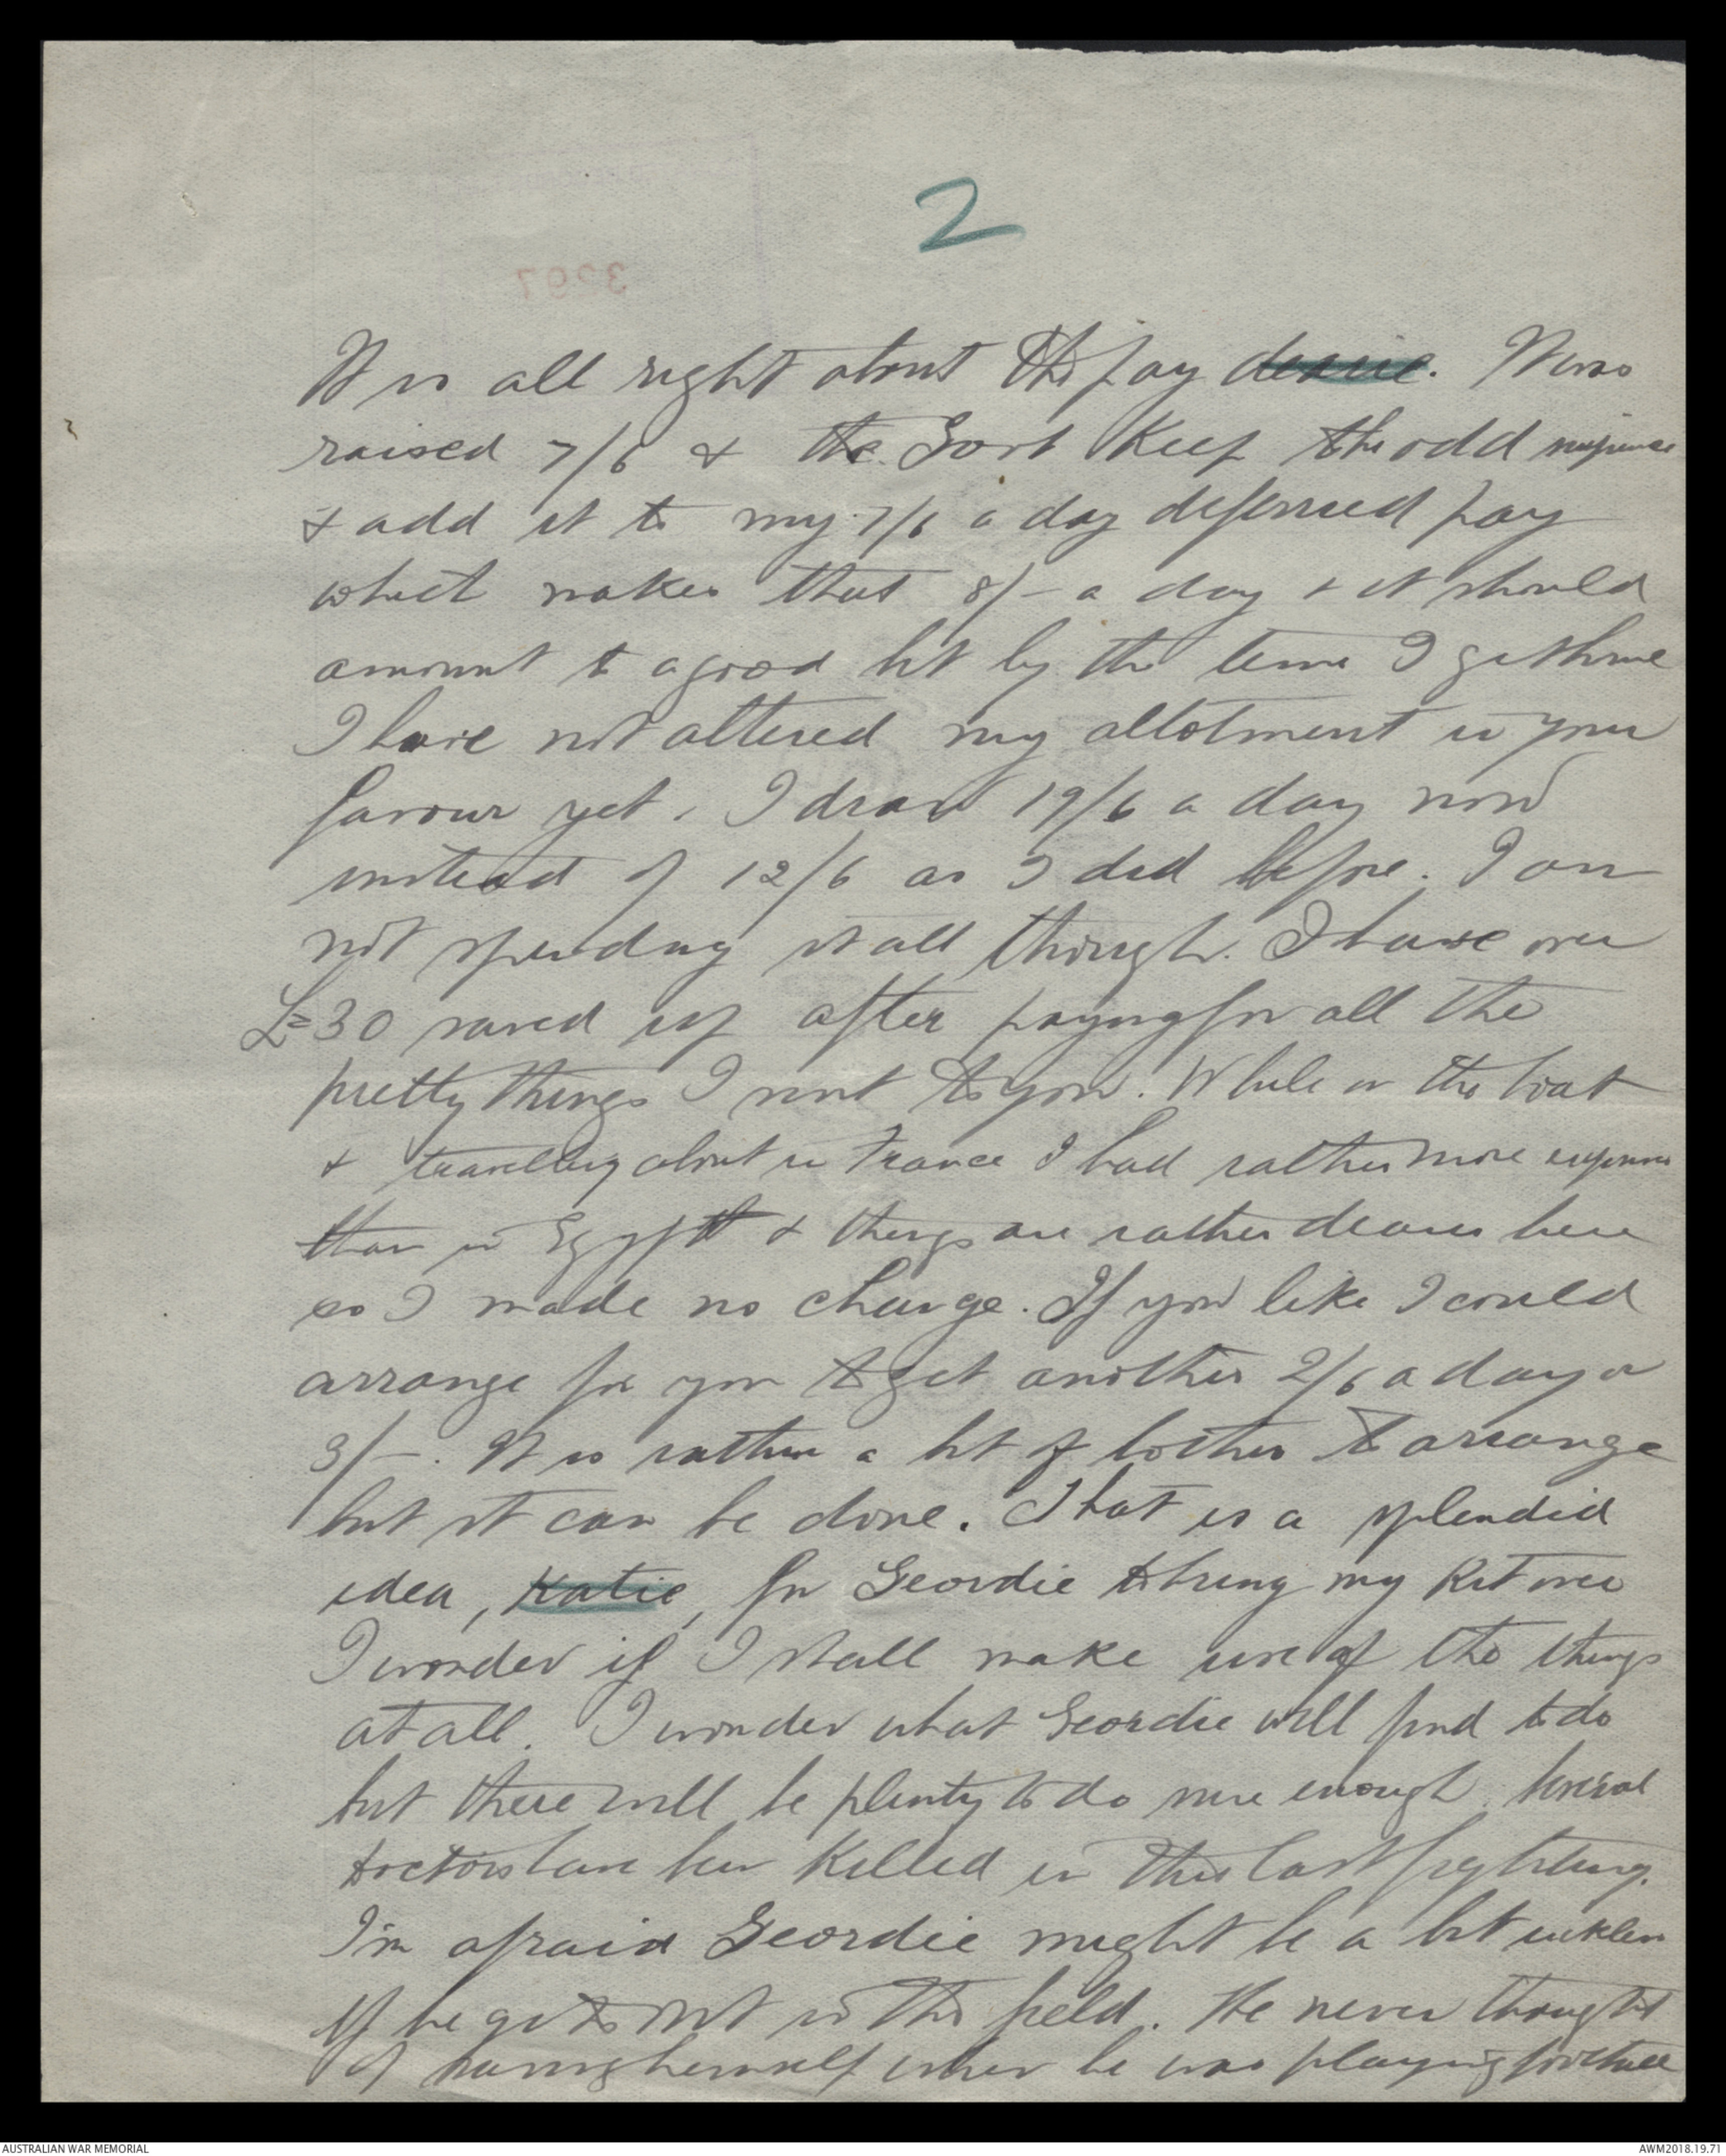 2
3297
It is all right about the pay dearie. It was
raised 7/6 & the Govt keep the odd sixpence
& add it to my 7/6 a day deferred pay
which makes that 8/- a day & it should
amount to a good bit by the time I get home
I have not altered my allotment in your
favour yet. I draw 19/6 a day now
instead of 12/6 as I did before. I am
not spending it all though. I have over
£30 saved up after paying for all the
pretty things I sent to you. While on the boat
& travelling about in France I had rather more expenses
than in Egypt & things are rather dearer here
so I made no change. If you like I could
arrange for you to get another 2/6 a day or
3/-. It is rather a bit of bother to arrange
but it can be done. That is a splendid
idea, Katie, for Geordie to bring my kit over
I wonder if I shall make use of the things
at all. I wonder what Geordie will find to do
but there will be plenty to do sure enough. Several
doctors have been killed in this last fighting.
I'm afraid Geordie might be a bit reckless
if he gets out in the field. He never thought
of saving himself when he was playing football
AUSTRALIAN WAR MEMORIAL
AWM2018.19.71